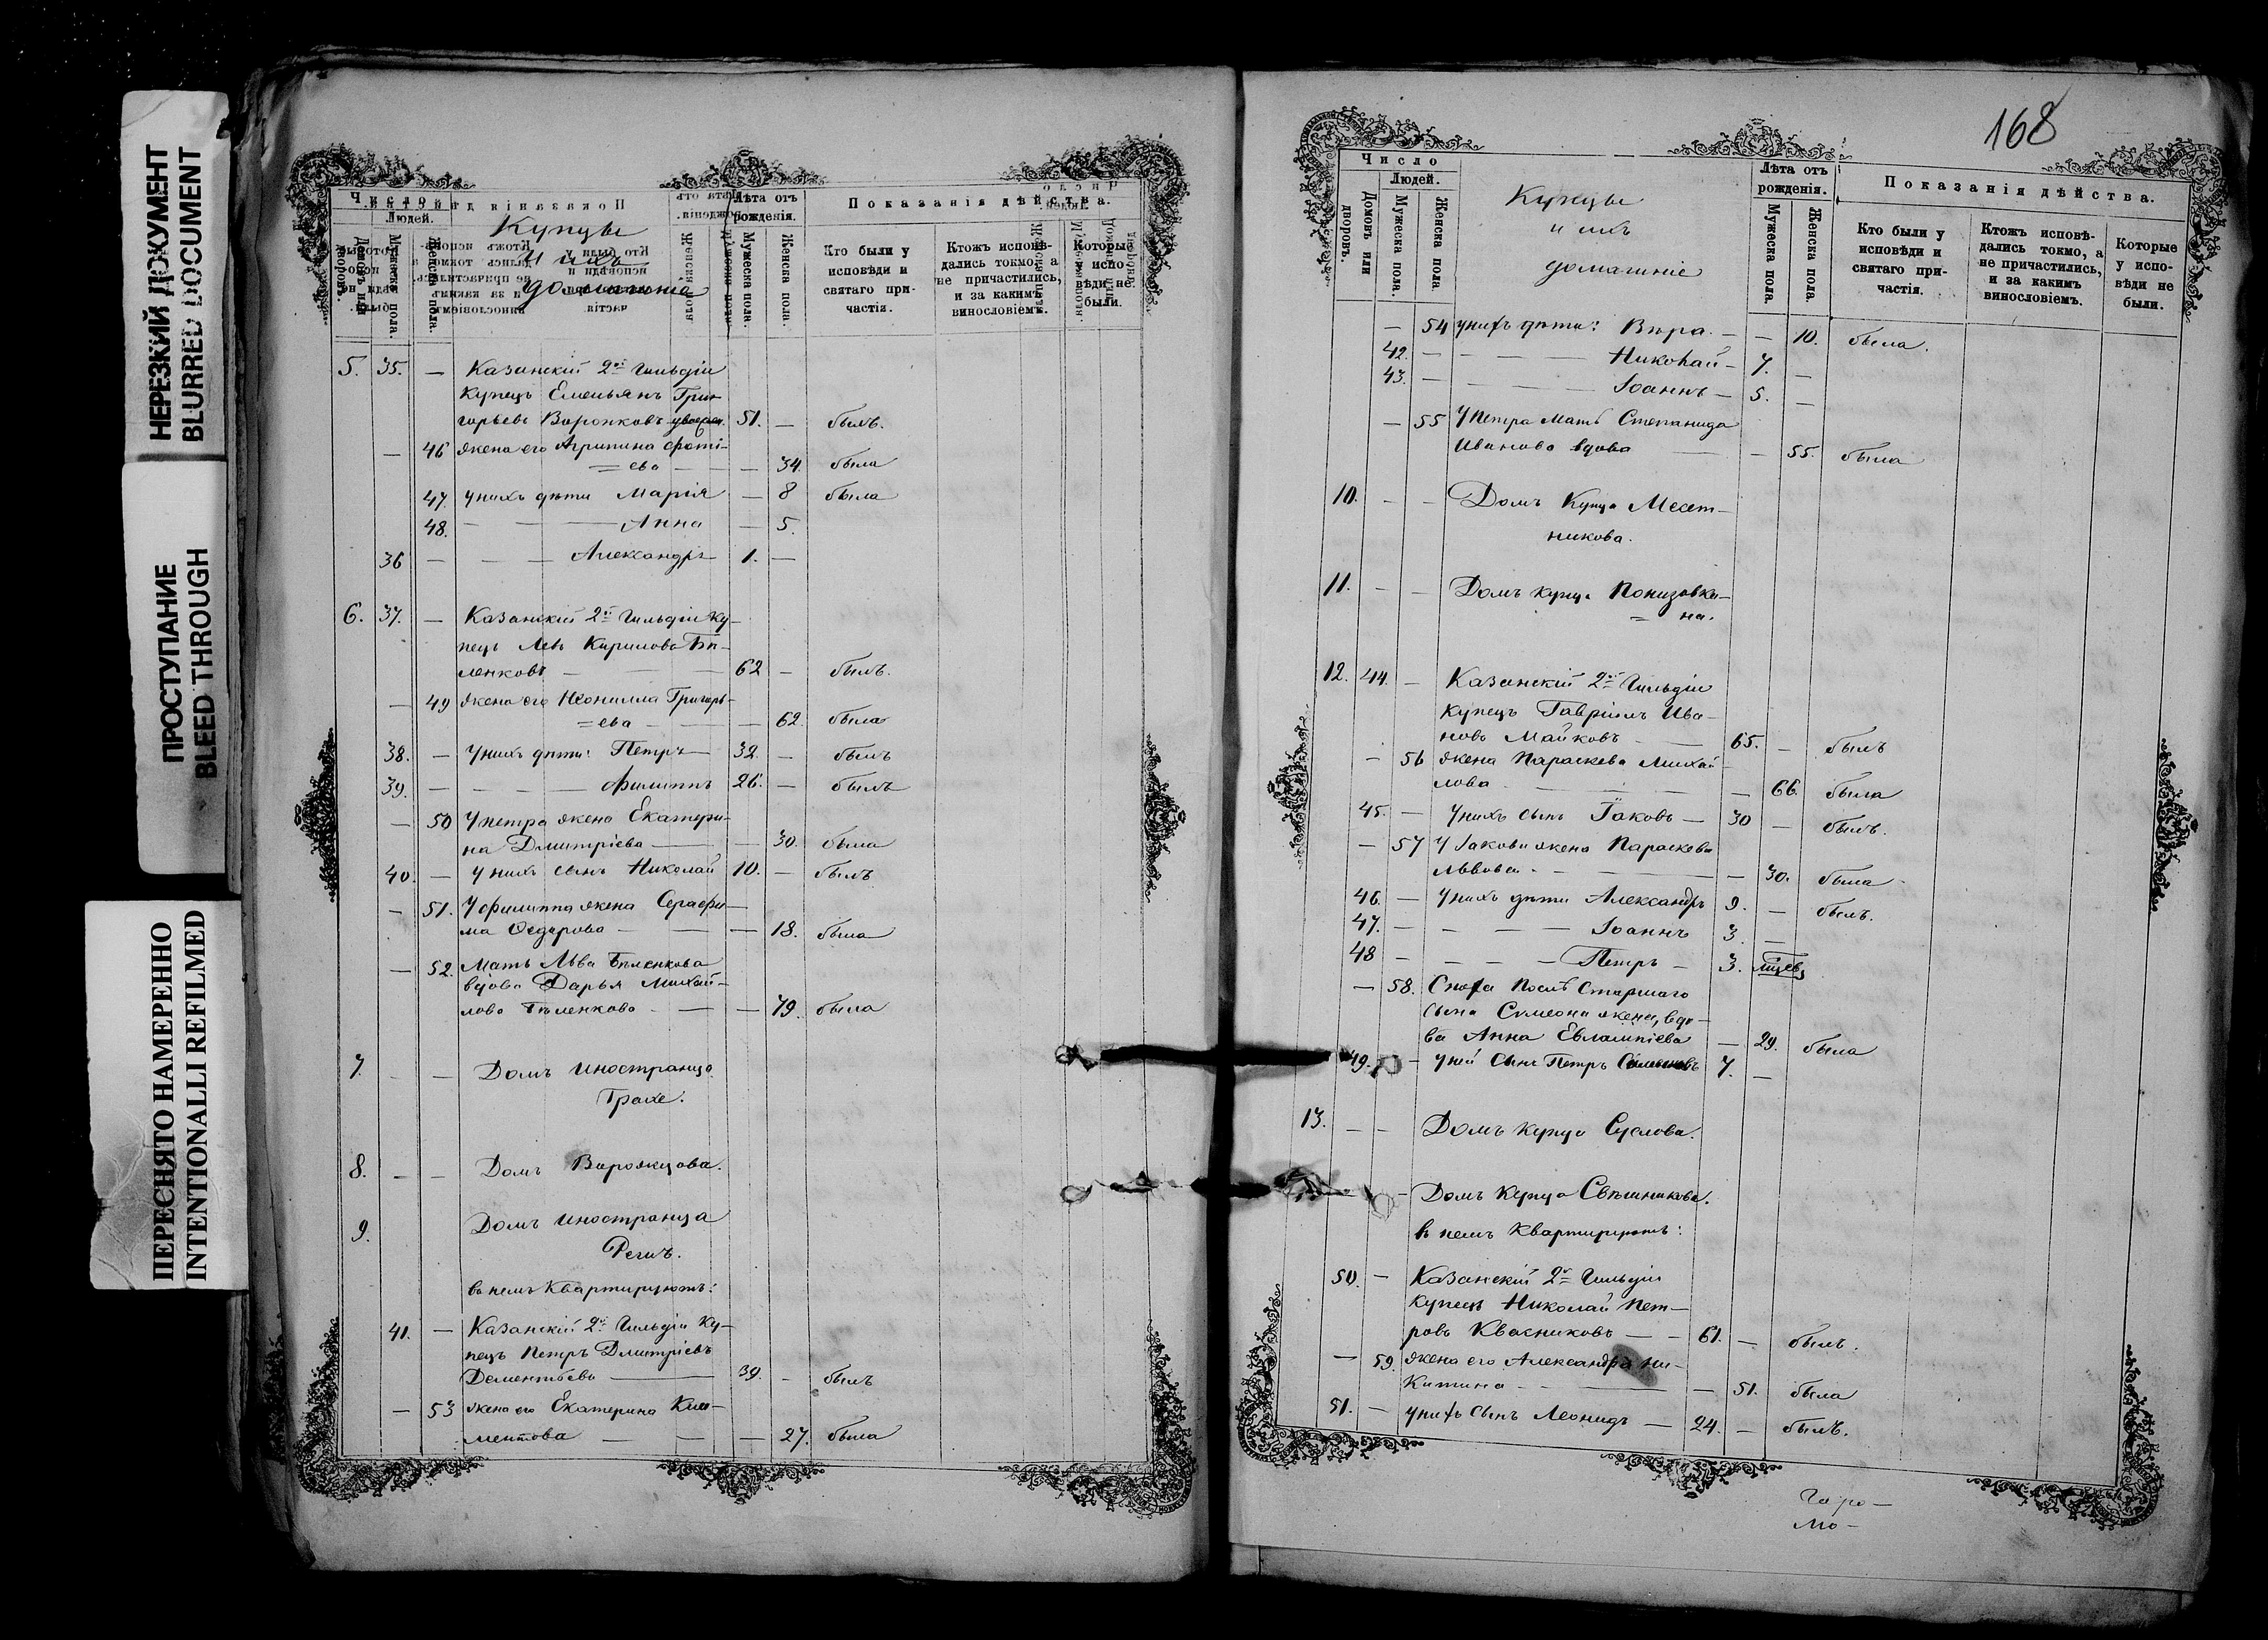 НЕРЕЗКИЙ ДОКУМЕНТ
BLURRED DOCUMENT
ПРОСТУПАНИЕ
BLEED THROUGH
ПЕРЕСНЯТО НАМЕРЕННО
INTENTIONALLI REFILMED
Число
Людей.
Домовъ или дворовъ.
Мужеска пола.
Женска пола.
Купцы
и ихъ
домашніе
Лѣта отъ рожденія.
Мужеска пола.
Женска пола.
Показанія дѣйства.
Кто были у исповѣди и святаго причастія.
Ктожъ исповѣдались токмо, а не причастились, и за какимъ винословіемъ.
Которые у исповѣди не были.
5. 35. — Казанскій 2ой Гильдіи
купецъ Емельянъ Григ
горьевъ Воронковъ 51. — былъ.
— 46 жена его Агрипина Фоті-
=ева — — — 34. была
47. у нихъ дѣти Марія — 8 была
48. — — — Анна — 5.
36 — — — Александръ 1. —
6. 37. — Казанскій 2й Гильдіи Ку-
пецъ Левъ Кириловъ Бѣ-
ленковъ — — 62 — былъ.
— 49 жена его Неонилла Григорь-
=ева — — — 62. была
38. — У нихъ дѣти: Петръ — 32. — былъ
39. — — — — Филиппъ 26. — былъ
— 50 У Петра жена Екатери-
на Дмитріева — — 30. была
40. — У нихъ сынъ Николай 10. — былъ
— 51. У Филиппа жена Серафи-
ма Ѳедорова — — — 18. была
— 52. Мать Льва Бѣленкова
вдова Дарья Михай-
лова Бѣленкова — — 79. была
7. — — Домъ Иностранца
Грахе.
8. — — Домъ Ворожцова.
9. Домъ Иностранца
въ немъ Квартируютъ:
41. — Казанскій 2й Гильдіи Ку-
пецъ Петръ Дмитріевъ
Дементьевъ — 39. — былъ
— 53 жена его Екатерина Кли-
ментова — — — 27. была
168
Число
Людей.
Домовъ или дворовъ.
Мужеска пола.
Женска пола
Купцы
и ихъ
домашніе
Лѣта отъ рожденія.
Мужеска пола.
Женска пола.
Показанія дѣйства.
Кто были у исповѣди и святаго причастія.
Ктожъ исповѣдались токмо, а не причастились, и за какимъ винословіемъ.
Которые у исповѣди не были.
— 54 у нихъ дѣти: Вѣра. — — 10. была.
42. — — — Николай — 7. —
43. — — — Іоаннъ — 5. —
— 55 У Петра мать Степанида
Иванова вдова — — 55. была
10. — — Домъ Купца Месет-
никова.
11. — — Домъ купца Понизовки-
= на.
12. 44. — Казанскій 2ой Гильдіи
купецъ Гавріилъ Ива-
новъ Майковъ — 65. — былъ
— 56 жена Параскева Михай-
лова — — 66. была
45. — У нихъ сынъ Іаковъ — 30 — былъ.
— 57 У Іакова жена Параскева
Львова — — — 30. была
46. — У нихъ дѣти Александръ 9. — былъ.
47. — — — Іоаннъ 3. —
48 — — — Петръ — 3.
— 58. Сноха послѣ старшаго
сына Симеона жена, вдо-
ва Анна Евлампіева — 29. была
49. — У ней сынъ Петръ Симеоновъ 7. —
13. — — Домъ купца Суслова.
— Домъ Купца Свѣшникова.
въ немъ Квартируютъ:
50. — Казанскій 2й Гильдіи
купецъ Николай Пет-
ровъ Квасниковъ — — 61. — былъ.
— 59. жена его Александра Ни-
китина — — — 51. была
51. — у нихъ сынъ Леонидъ — 24. — былъ.